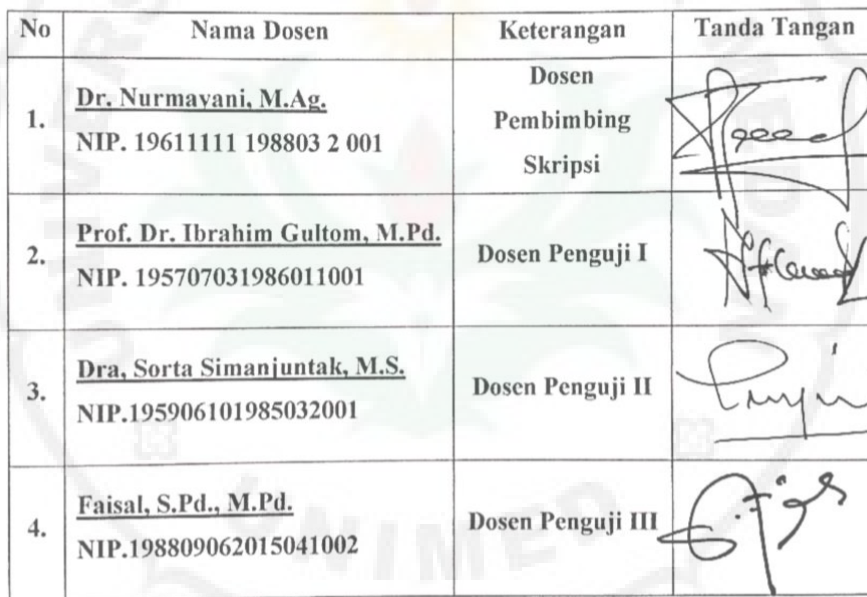 No Nama Dosen Keterangan Tanda Tangan
1. Dr. Nurmayani, M.Ag.
NIP. 19611111 198803 2 001
Dosen
Pembimbing
Skripsi
2. Prof. Dr. Ibrahim Gultom, M.Pd.
NIP. 195707031986011001
Dosen Penguji I
3. Dra, Sorta Simanjuntak, M.S.
NIP.195906101985032001
Dosen Penguji II
4. Faisal, S.Pd., M.Pd.
NIP.198809062015041002
Dosen Penguji III
UNIMED